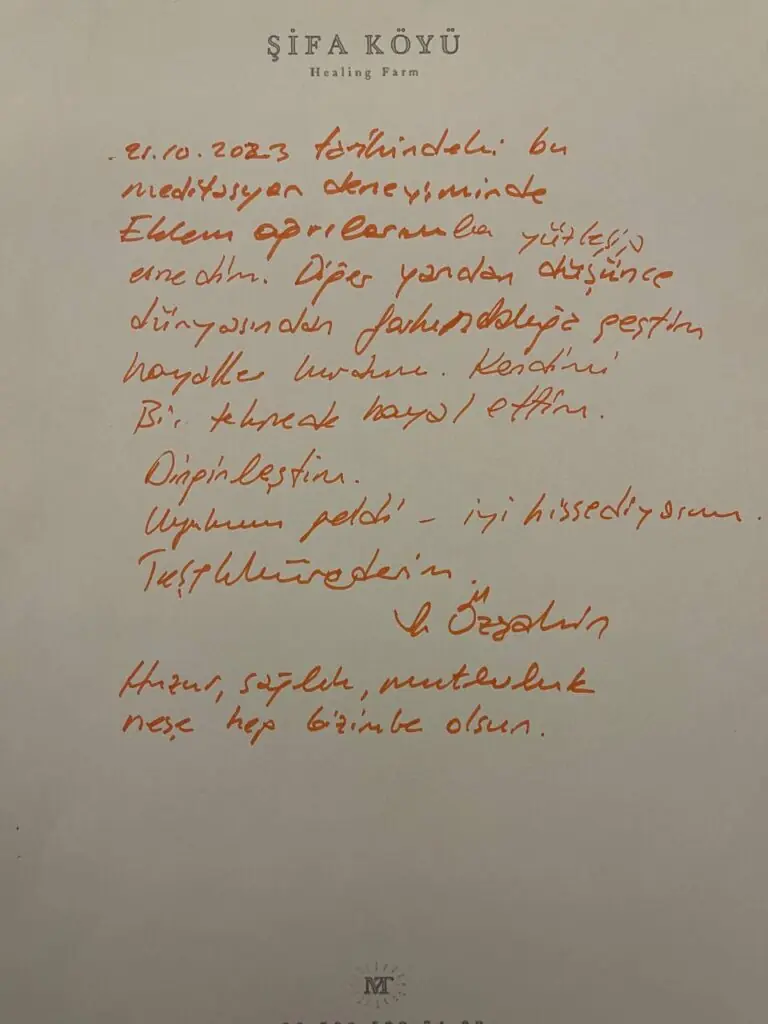 ŞİFA KÖYÜ
Healing Farm
21.10.2023 tarihindeki bu
meditasyon deneyiminde
Eklem ağrılarımla yüzleşip
Diğer yandan düşünce
dünyasından farkındalığa geçtim
hayaller kurdum. Kendimi
Bir teknede hayal ettim.
Dinginleştim.
Uykum geldi - iyi hissediyorum.
Teşekkürederim.
Özşahin
Huzur, sağlık, mutluluk
neşe hep bizimle olsun.
MT